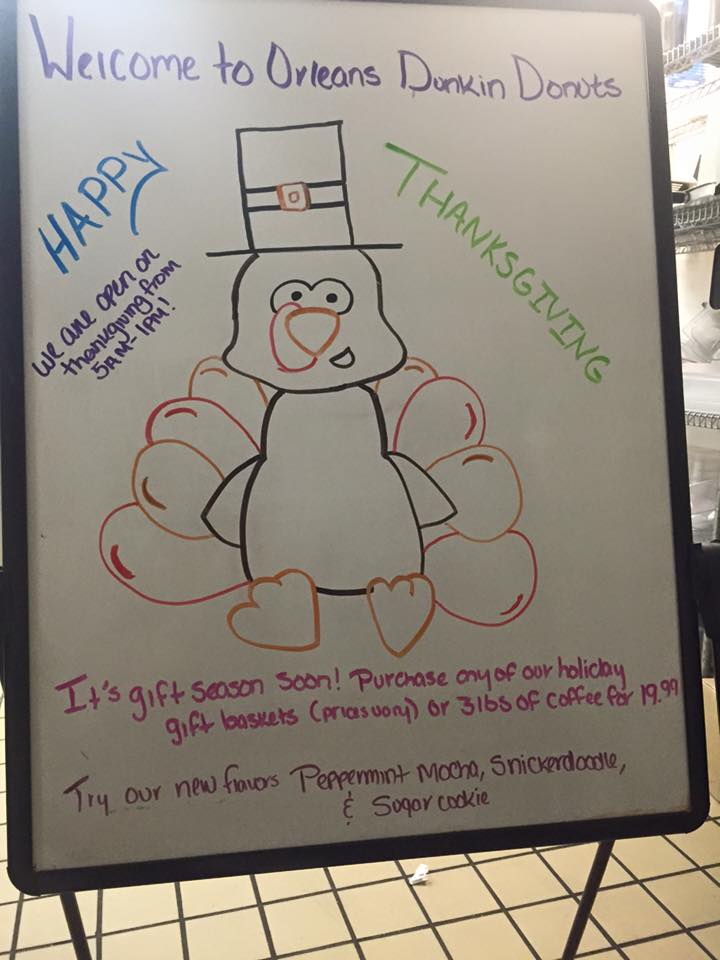 Welcome to Orleans Dunkin Donuts
HAPPY
THANKSGIVING
We are open on
thanksgiving from
5AM-1PM!
It's gift season soon! Purchase any of our holiday
gift baskets (prices vary) or 3lbs of coffee for 19.99
Try our new flavors Peppermint Mocha, Snickerdoodle,
& Sugar cookie